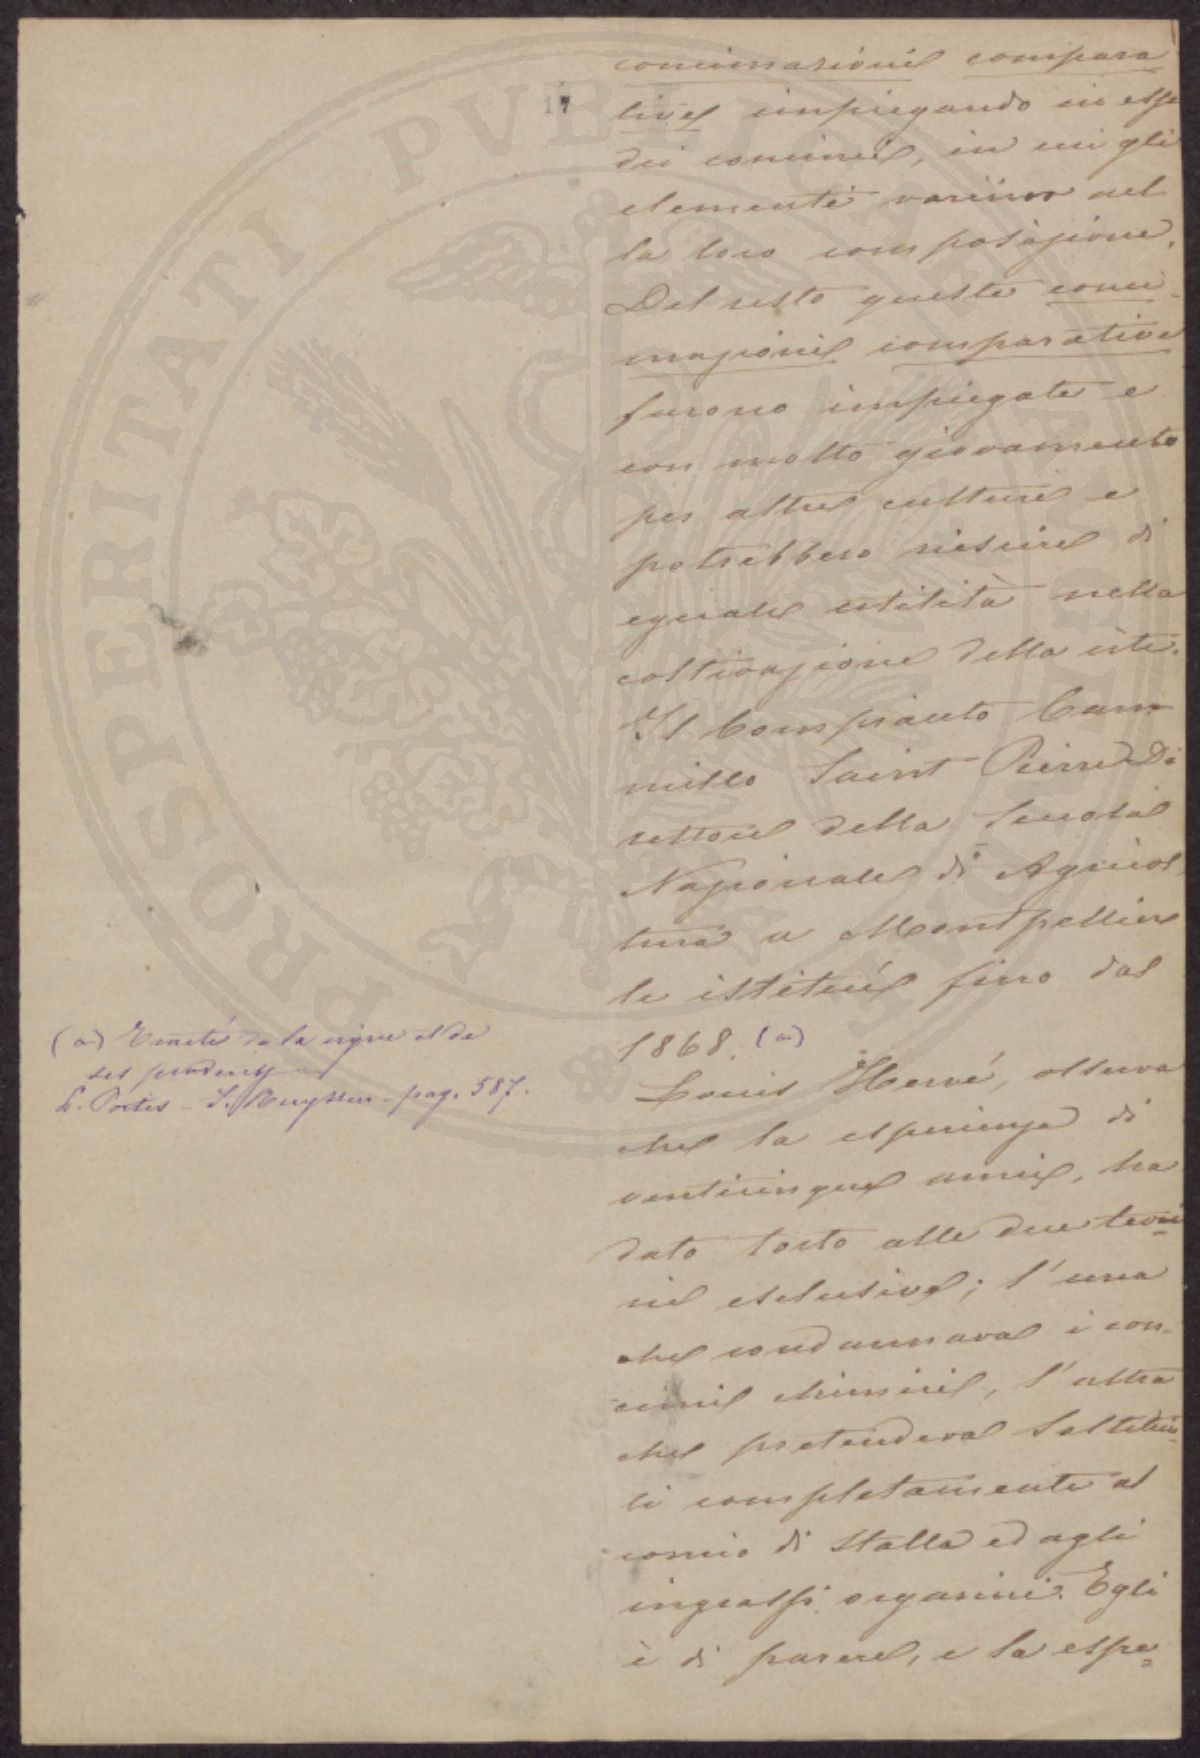 17
concimazioni compara
tive, impiegando in esse
dei concimi, in cui gli
elementi variino nel
la loro composizione.
Del resto queste conci-
mazioni comparative
furono impiegate e
con molto giovamento
per altre culture e
potrebbero riescire di
eguale utilità nella
coltivazione della vite.
Il Compianto Cam
millo Saint Pierre Di
rettore della Scuola
Nazionale di Agricol
tura a Montpellier
le istituì fino dal
1868. (a)
Louis Hervé, osserva
che la esperienza di
venticinque anni, ha
dato torto alle due teori
e esclusive; l'una
che condannava i con-
cimi chimici, l'altra
che pretendeva sostituir
li completamente al
concio di stalla ed agli
ingrassi organici. Egli
è di parere, e la espe=
(a) Traité de la vigne et de
ses produits
L. Portes - F. Ruyssen - pag. 587.
PROSPERITATI PVBLICAE